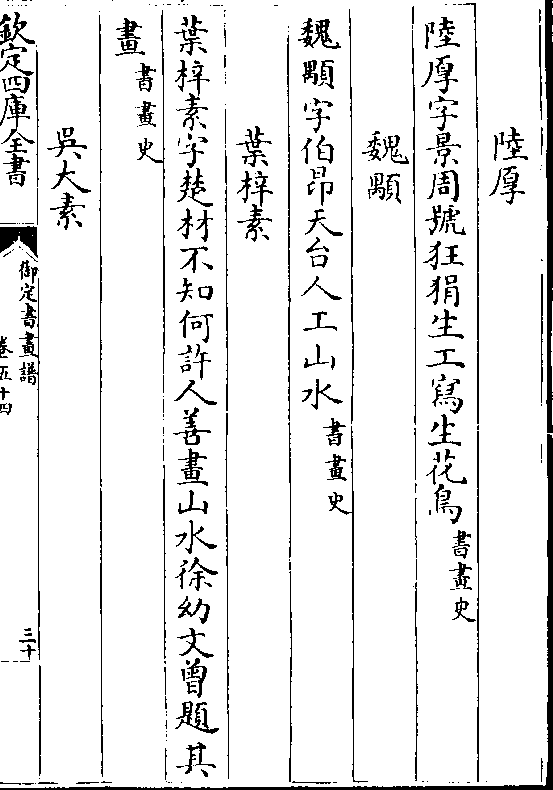 陸厚
陸厚字景周號狂狷生工寫生花鳥書畫史
魏顒
魏顒字伯昂天台人工山水書畫史
葉梓素
葉梓素字楚材不知何許人善畫山水徐幼文曾題其
畫書畫史
吳大素
欽定四庫全書
御定書畫譜
卷五十四
三十